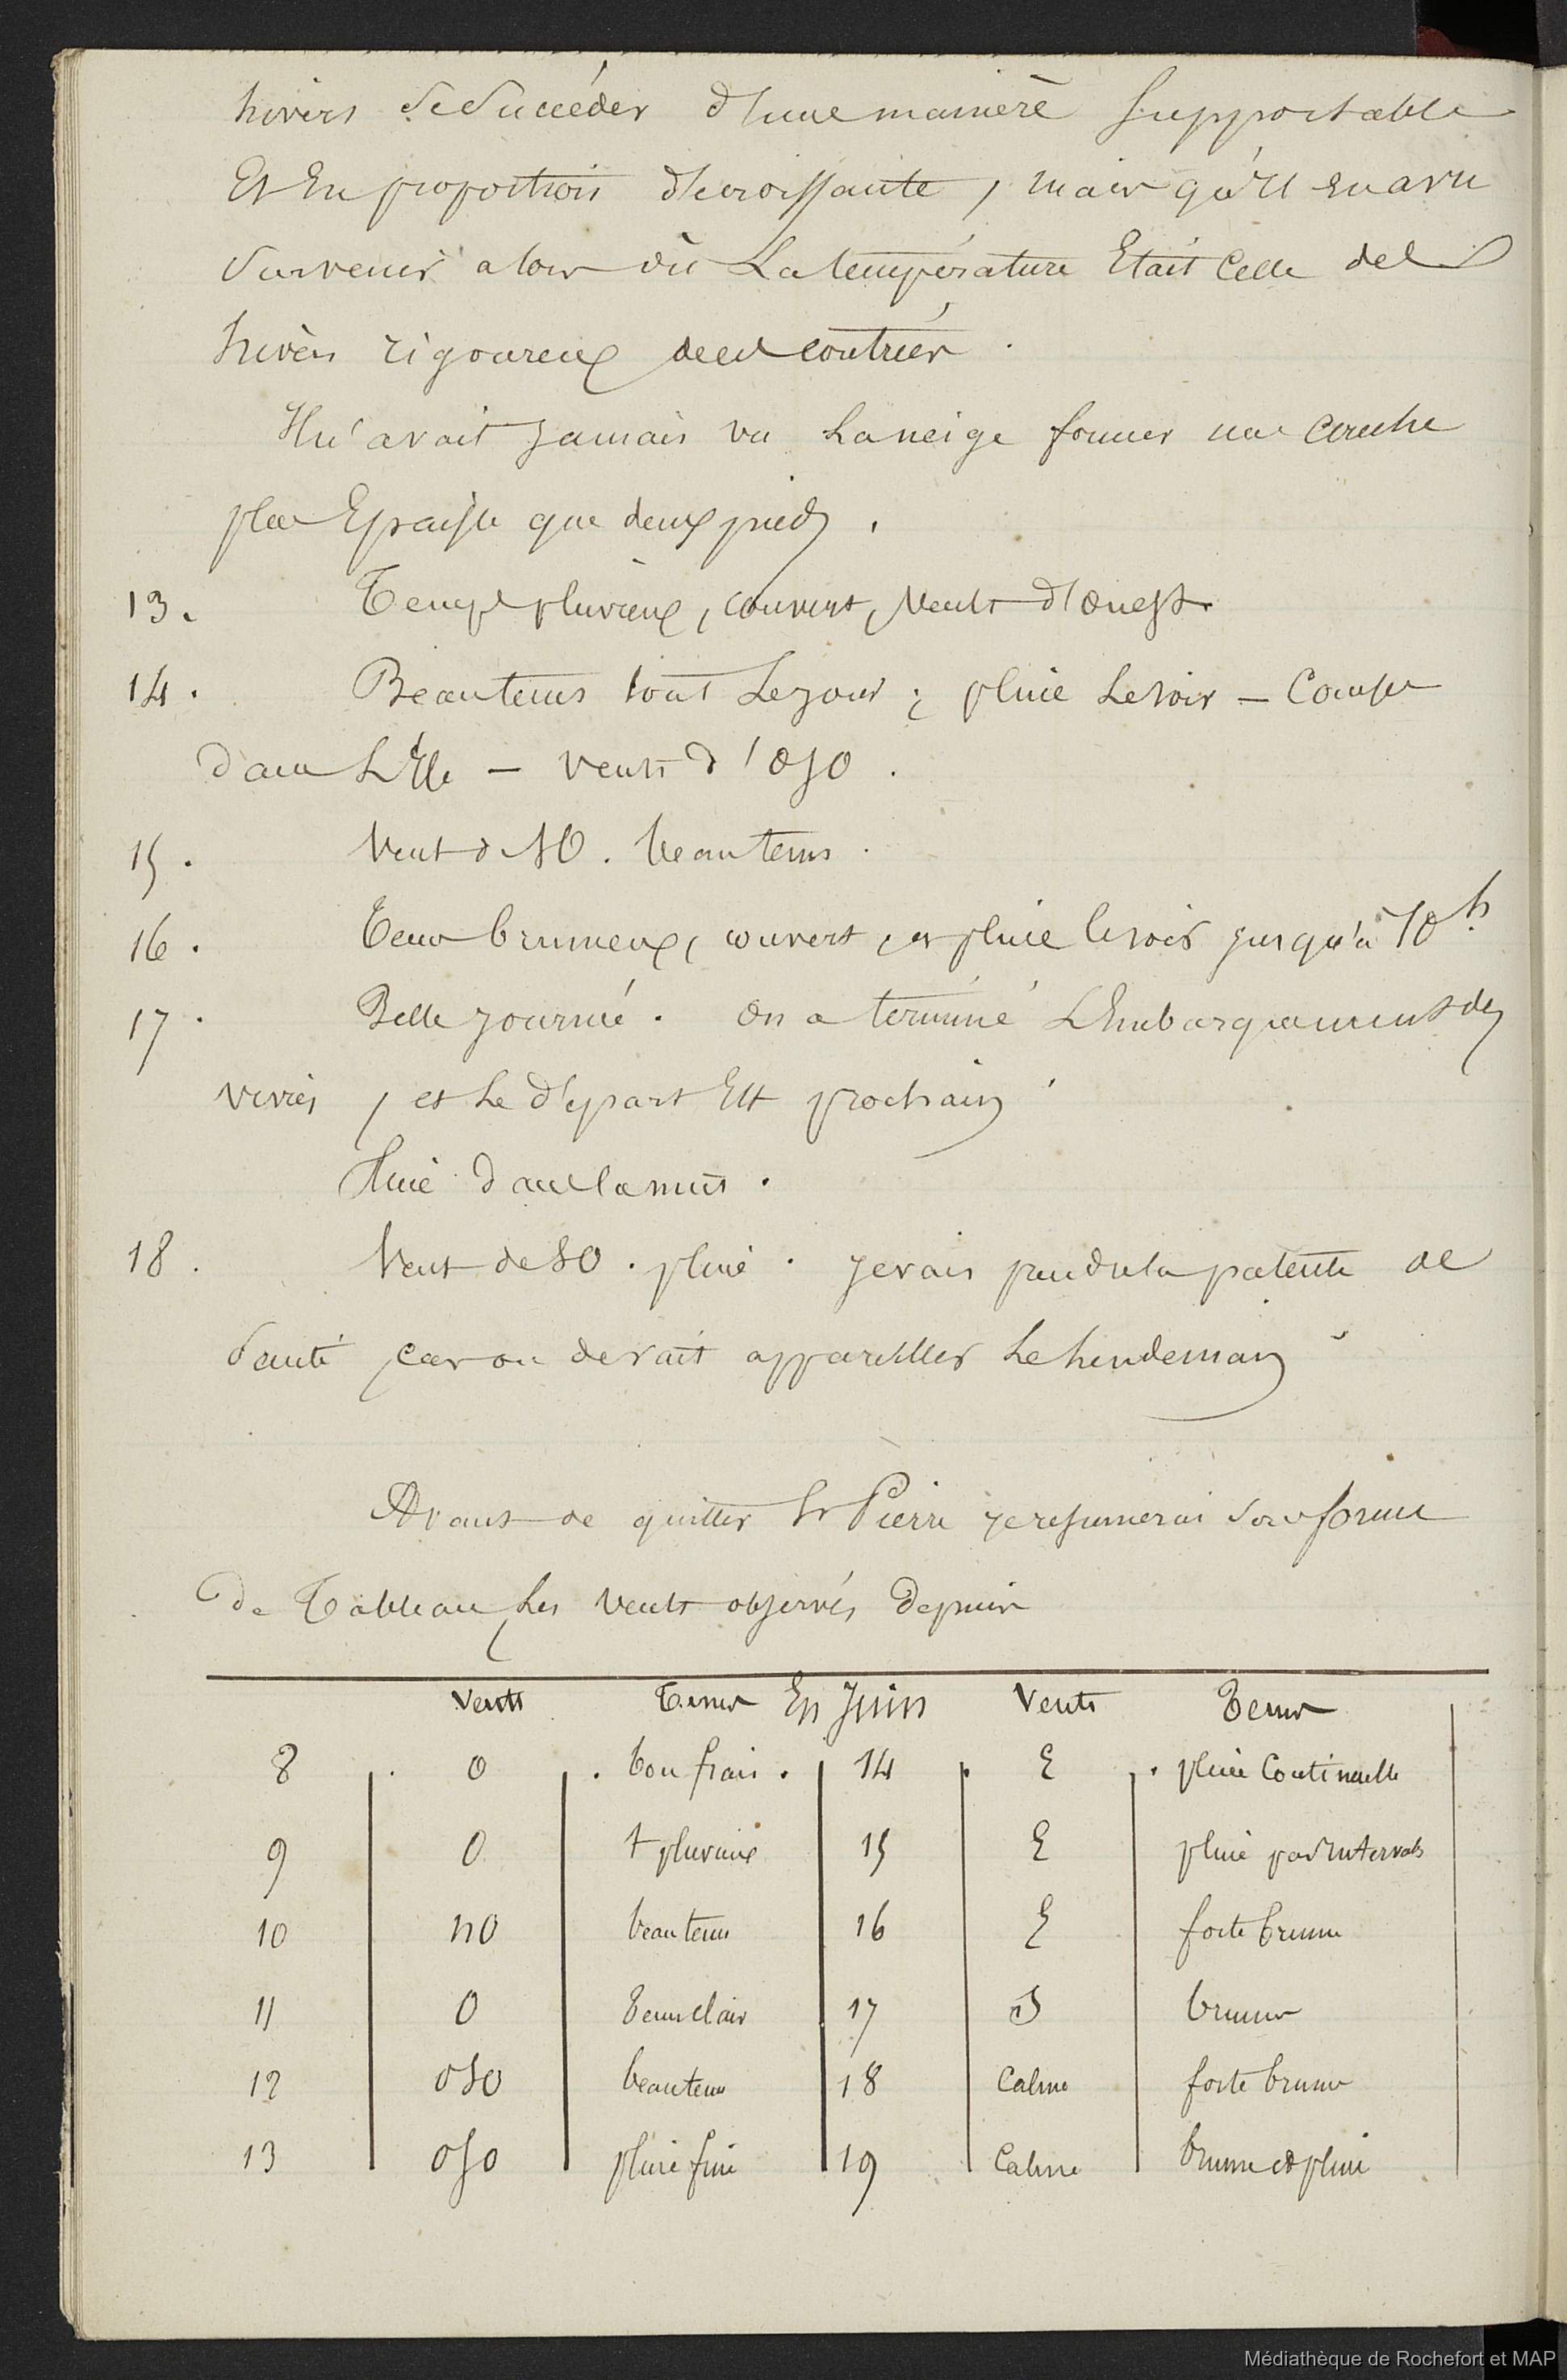 hivers se succéder d'une manière supportable
Et En proportion décroissante, mais qu'il en a vu
survenir alors où La température Etait Celle des
hivers rigoureux de ces contrées.
Il n'avait jamais vu La neige former une couche
plus Epaisse que deux pieds.
13. Temps pluvieux, couvert, Vents d'Ouest
14. Beau tems tout Le jour; pluie Le soir – Course
dans L'Ile – vents d'OSO.
15. Vent de SO. beau tems.
16. Tems brumeux, couvert, et pluie le soir jusqu'à 10h.
17. Belle journée. On a terminé L'Embarquement des
vivres, et Le départ Est prochain
Pluie dans la nuit.
18. Vent de SO. pluie. je vais prendre la patente de
santé, car on devait appareiller Le Lendemain
Avant de quitter St Pierre je resumerai sous forme
de Tableau Les Vents observés Depuis
Vents Tems En Juin Vents Tems
8 . O . bon frais . 14 . E . pluie Continuelle
9 O t pluvieux 15 E pluie par Intervals
10 NO beau tems 16 E forte brume
11 O Tems clair 17 S brume
12 OSO beau tems 18 Calme forte brume
13 OSO pluie fine 19 Calme brume et pluie
Médiathèque de Rochefort et MAP